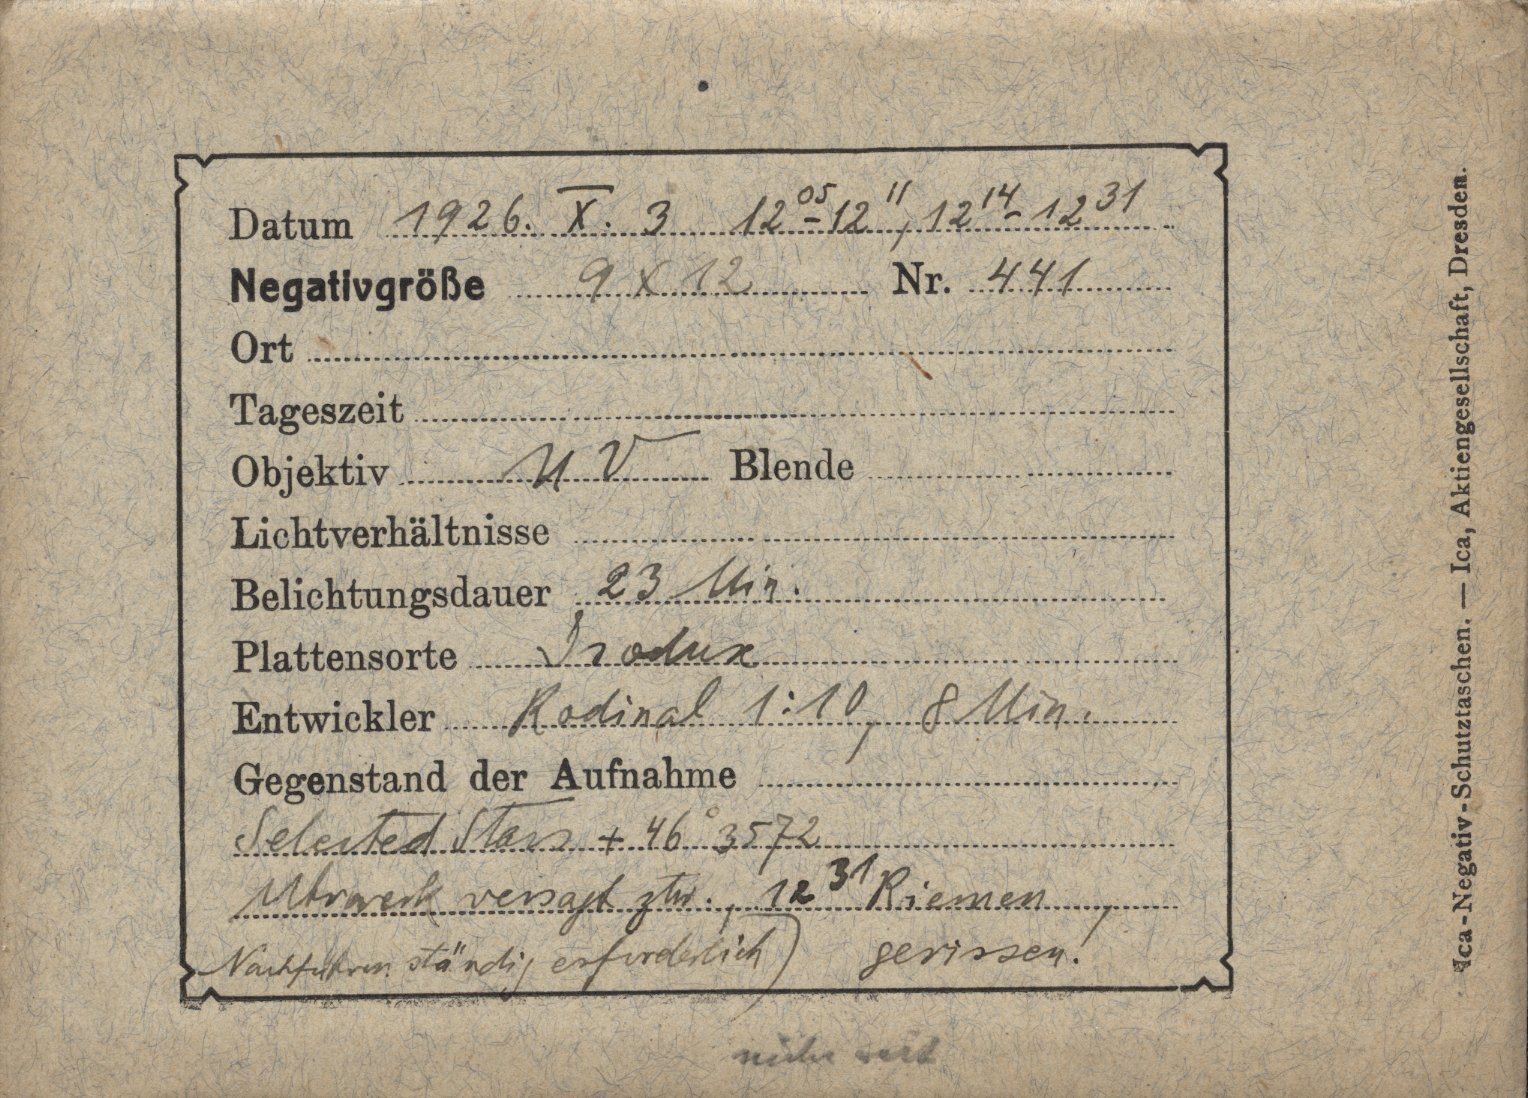 Datum 1926. X. 3 12 05 - 12 11, 12 14 - 12 31
Negativgröße 9 x 12 Nr. 441
Ort
Tageszeit
Objektiv UV Blende
Lichtverhältnisse
Belichtungsdauer 23 Min.
Plattensorte
Entwickler Rodinal 1:10, 8 Min.
Gegenstand der Aufnahme
Selected Stars + 46° 3572
Uhrwerk versagt ztw., 12 31 Riemen
Nachführen ständig erforderlich) gerissen!
Ica-Negativ-Schutztaschen. — Ica, Aktiengesellschaft, Dresden.